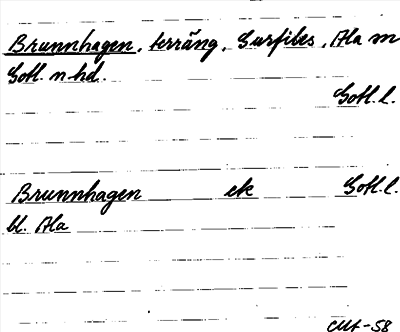 Brunnhagen, terräng, Surfiles, Ala sn
Gotl. n. hd.
Gotl. l.
Brunnhagen ek Gotl. l.
bl. Ala
CMF-58